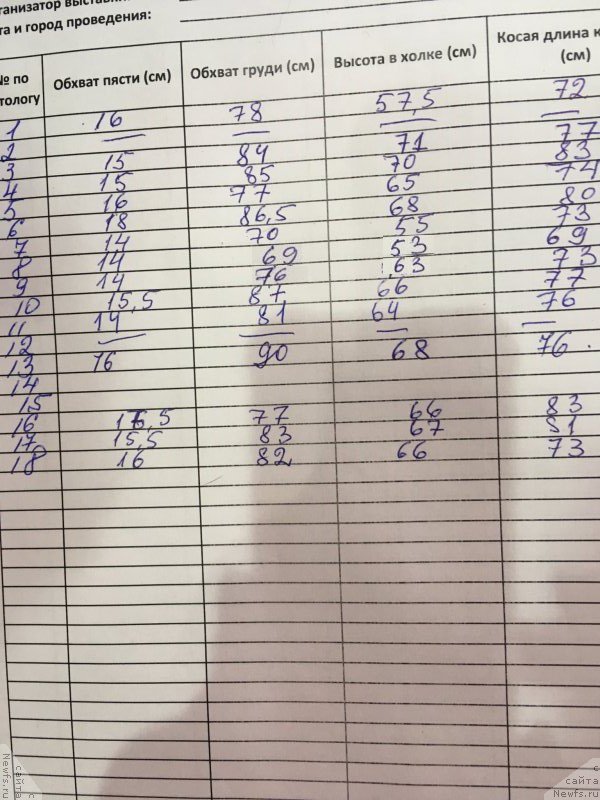 ганизатор выставки
та и город проведения:
№ по Обхват пясти (см) Обхват груди (см) Высота в холке (см) Косая длина к
тологу (см)
1 16 78 57,5 72
2 — — — —
3 15 84 71 77
4 15 85 70 83
5 16 77 65 74
6 18 86,5 68 80
7 14 70 55 73
8 14 69 53 69
9 14 76 63 73
10 15,5 87 66 77
11 14 81 64 76
12 — — — —
13 16 90 68 76
14
15
16 16,5 77 66 83
17 15,5 83 67
18 16 82 66 73
с сайта Newfs.ru
с сайта Newfs.ru